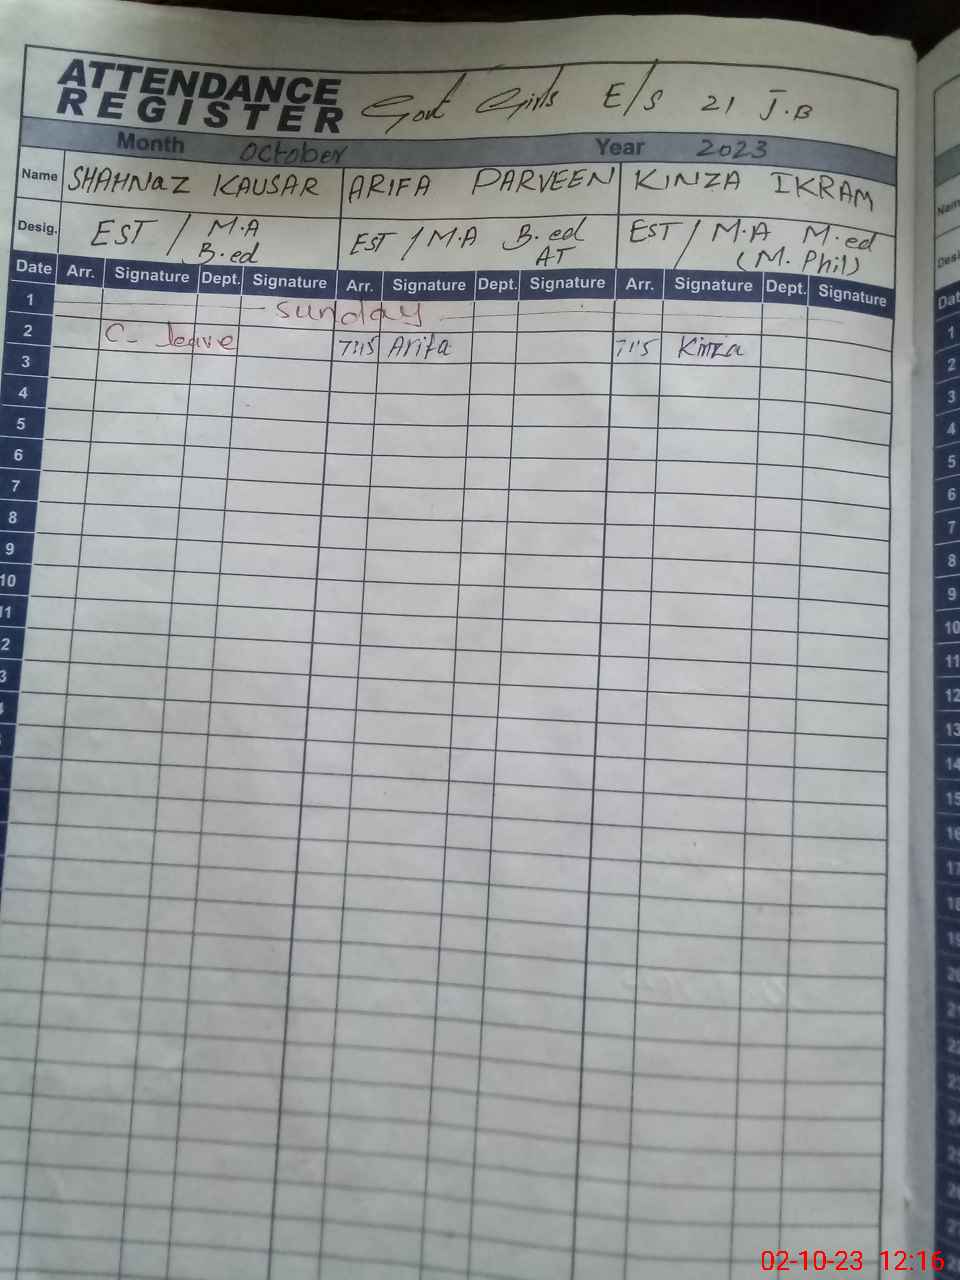 ATTENDANCE REGISTER Govt Girls E/S 21 J.B
Month October Year 2023
Name SHAHNaZ KAUSAR ARIFA PARVEEN KINZA IKRAM
Desig. EST / M.A B.ed EST / M.A B.ed AT EST / M.A M.ed (M. Phil)
Date Arr. Signature Dept. Signature Arr. Signature Dept. Signature Arr. Signature Dept. Signature
1 Sunday
2 C- leave 7:15 Arifa 7:15 Kinza
3
4
5
6
7
8
9
10
11
2
3
Nam
Desi
Dat
1
2
3
4
5
6
7
8
9
10
11
12
13
14
15
16
17
18
19
20
02-10-23 12:16